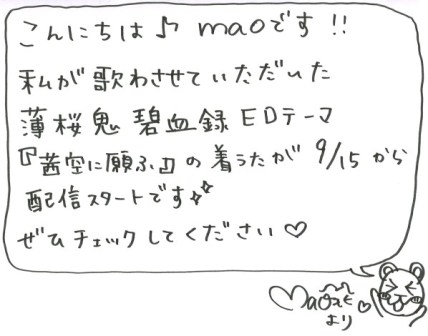 こんにちは♪ maoです!!
私が歌わせていただいた
薄桜鬼 碧血録 EDテーマ
『茜空に願ふ』の着うたが 9/15から
配信スタートです☆☆
ぜひチェックしてください♡
mao
より